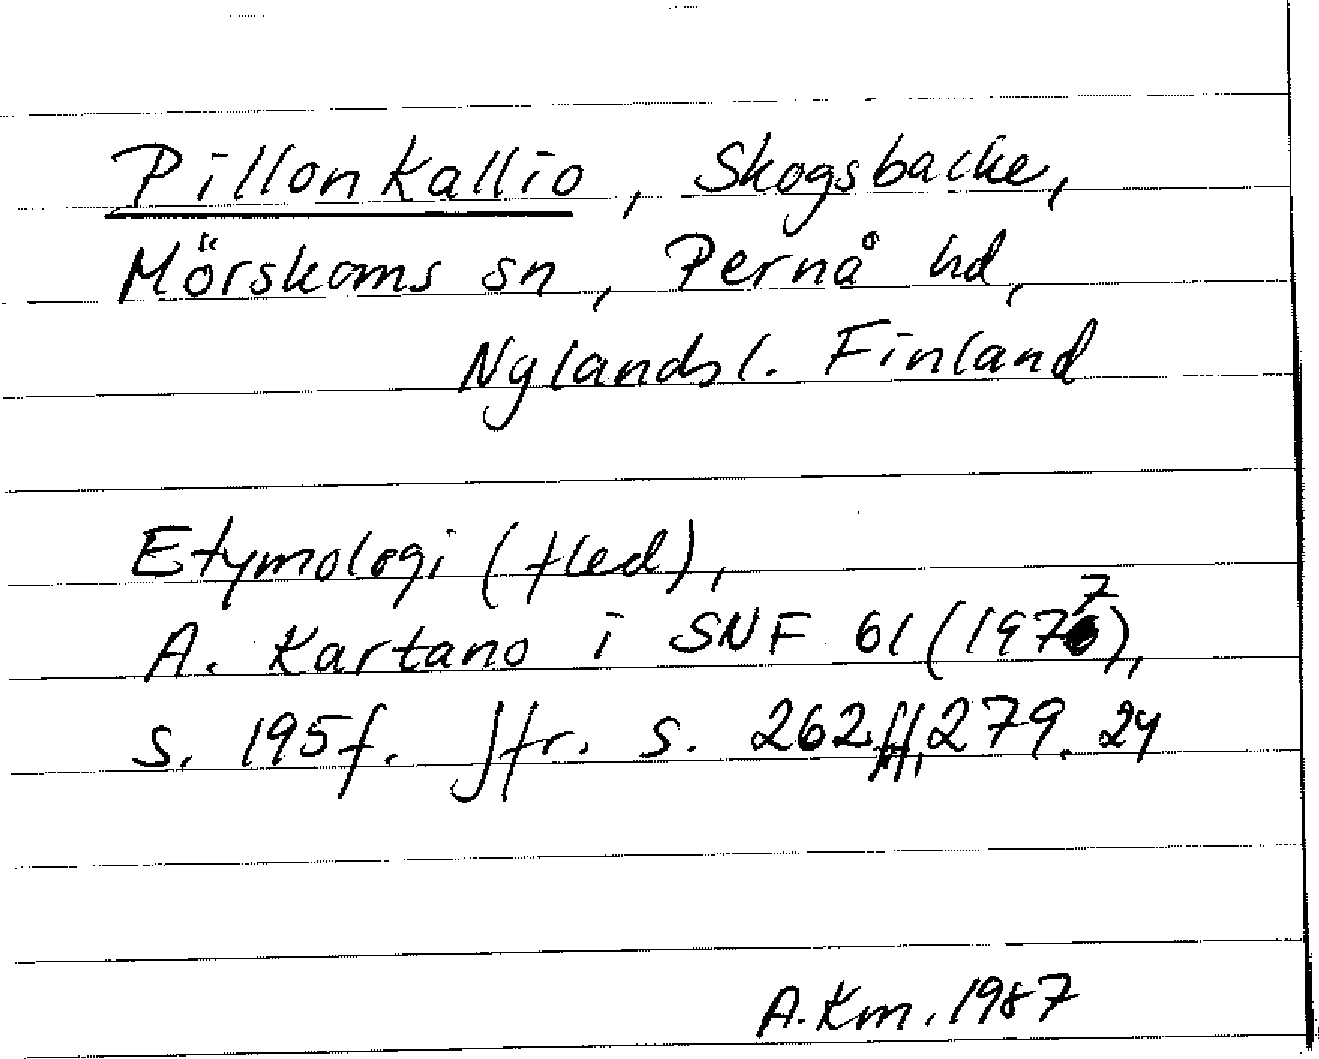 Pillonkallio, Skogsbacke,
Mörskoms sn, Pernå hd,
Nylandsl. Finland
Etymologi (fled),
A. Kartano i SNF 61 (1977),
s. 195f. Jfr. s. 262ff, 279. 24
A. Km. 1987